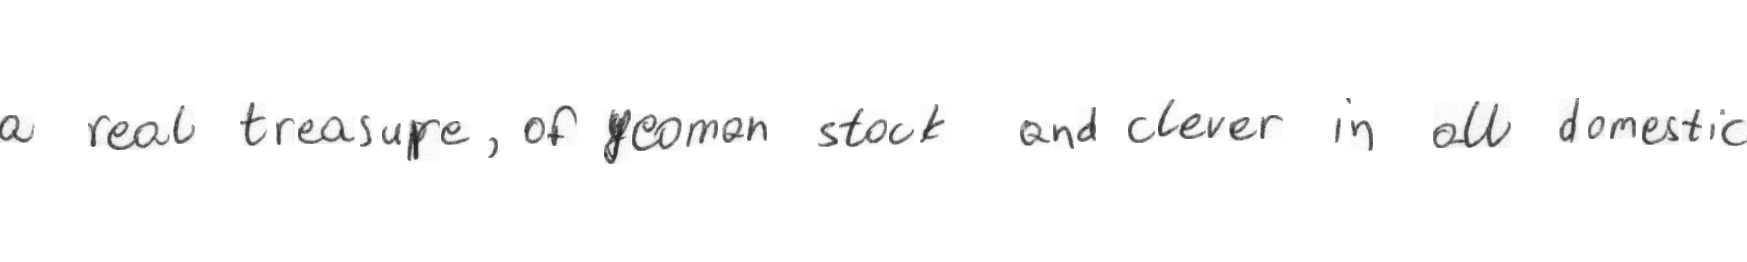 a real treasure, of yeoman stock and clever in all domestic